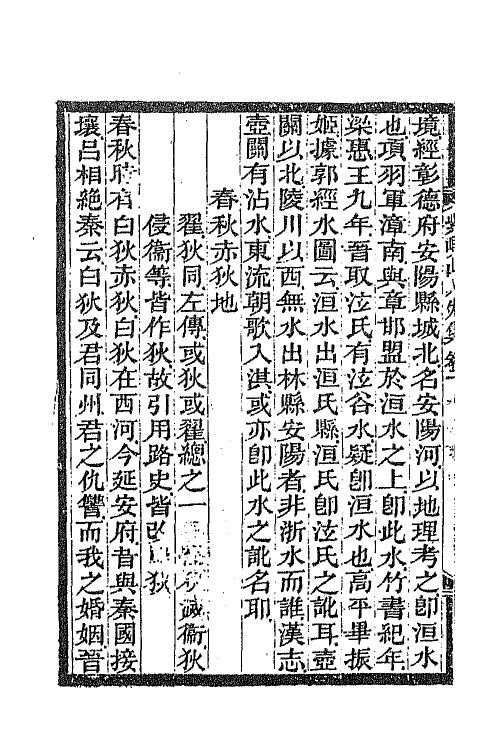 境經彰德府安陽縣城北名安陽河以地理考之卽洹水
也項羽軍漳南與章邯盟於洹水之上卽此水竹書紀年
梁惠王九年晉取泫氏有泫谷水疑卽洹水也高平畢振
姬據郭經水圖云洹水出洹氏縣洹氏卽泫氏之訛耳壺
關以北陵川以西無水出林縣安陽者非浙水而誰漢志
壺關有沾水東流朝歌入淇或亦卽此水之訛名耶
春秋赤狄地
翟狄同左傳或狄或翟總之一滅衞狄
侵衞等皆作狄故引用路史皆改狄
春秋時有白狄赤狄白狄在西河今延安府昔與秦國接
壤呂相絶秦云白狄及君同州君之仇讐而我之婚姻晉